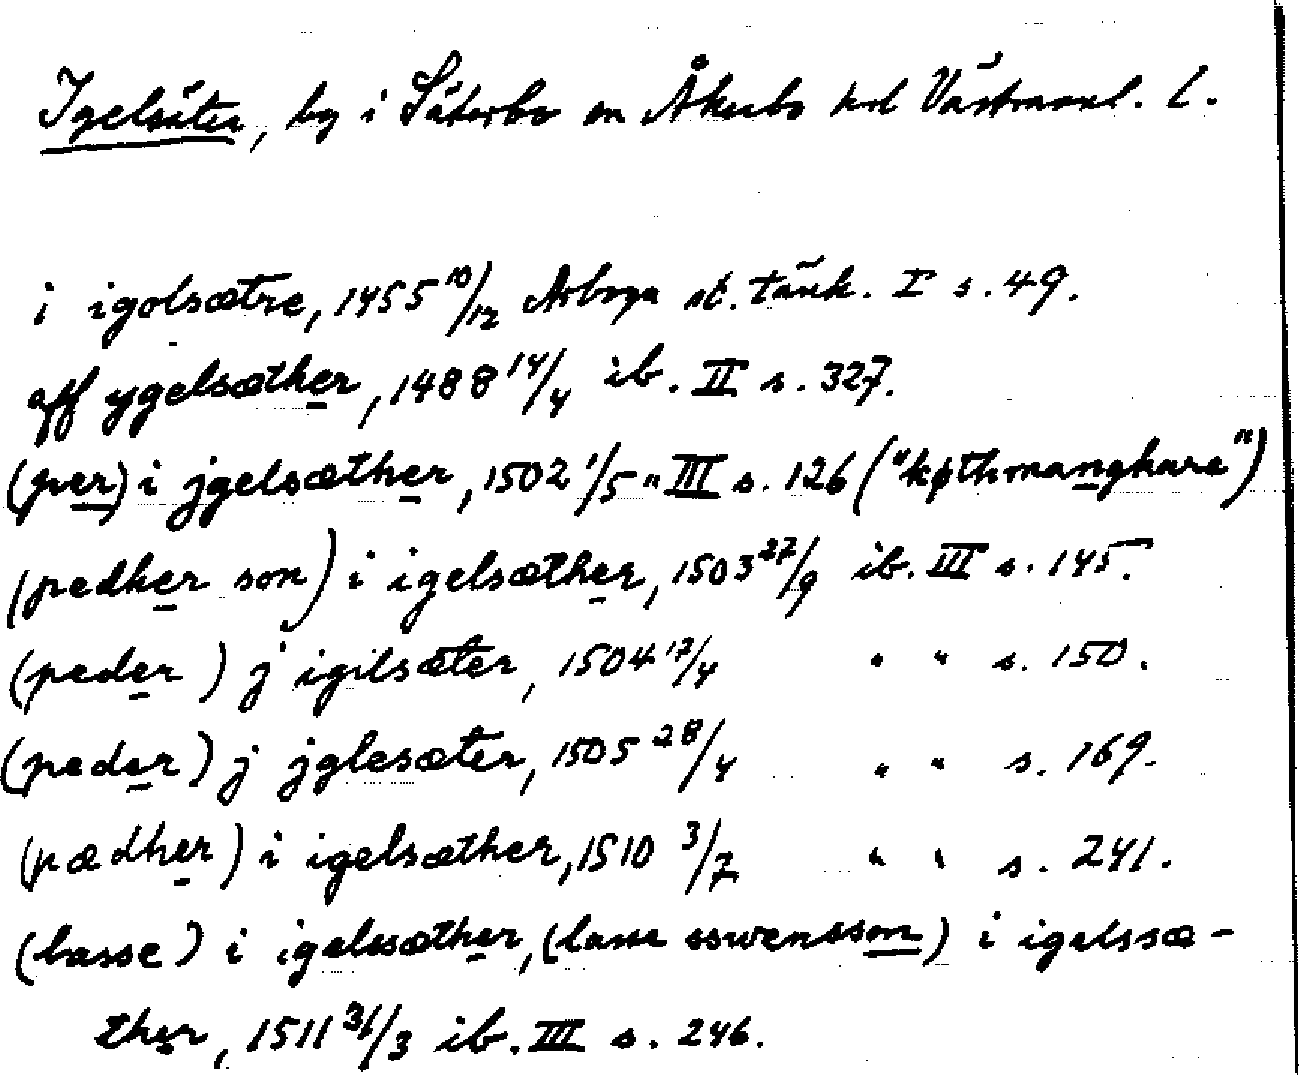 Igelsäter, by i Säterbo sn Åkerbo hd Västmanl. l.
i igolsætre, 1455 10/12 Arboga st. tänk. I s. 49.
aff ygelsæther, 1488 14/4 ib. II s. 327.
(per) i jgelsæther, 1502 1/5 " III s. 126 ("køthmanghare")
(pedher son) i igelsæther, 1503 27/9 ib. III s. 145.
(peder ) j igilsæter, 1504 17/4 " " s. 150.
(peder) j jglesæter, 1505 28/4 " " s. 169.
(pædher) i igelsæther, 1510 3/7 " " s. 241.
(lasse) i igelssæther, (lasse sswensson) i igelssæ-
ther, 1511 31/3 ib. III s. 246.